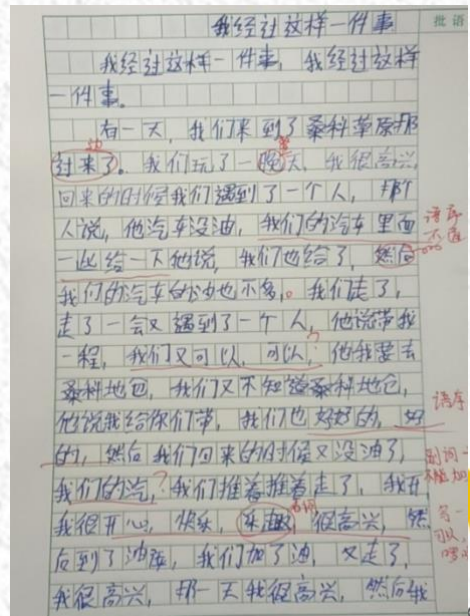 批语
我经过这样一件事
我经过这样一件事，我经过这样
一件事。
有一天，我们来到了桑科草原那
边
过来了。我们玩了一晚天，我很高兴，
回来的时候我们遇到了一个人，那个
人说，他汽车没油，我们的汽车里面
语序不通
一些给一下他说，我们也给了，然后
我们的汽车的油也不多。我们走了，
走了一会又遇到了一个人，他说带我
一程，我们又可以，可以，他我要去
？
桑科地包，我们又不知道桑科地仓，
语序
他说我给你们带，我们也好好的，好
的，然后我们回来的时候又没油了，
别词
我们的汽，我们推着推着走了，我开
？
我很开心，快乐，乐趣，很高兴，然
后到了油库，我们加了油，又走了，
我很高兴，那一天我很高兴，然后我